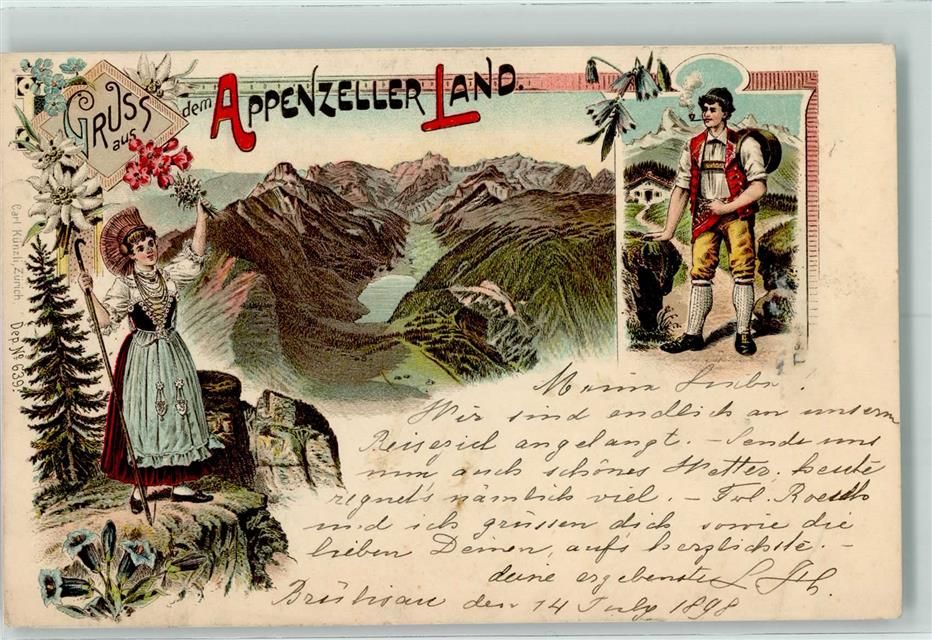 GRUSS
aus
dem APPENZELLER LAND.
Carl Künzli, Zürich Dep. No 639.
Meine Liebe!
Wir sind endlich an unserm
Reiseziel angelangt. – Sende uns
nun auch schönes Wetter, heute
regnet's nämlich viel. – Frl. Roesch
und ich grüssen dich sowie die
lieben Deinen, aufs herzlichste. –
deine ergebenste
den 14 July 1898